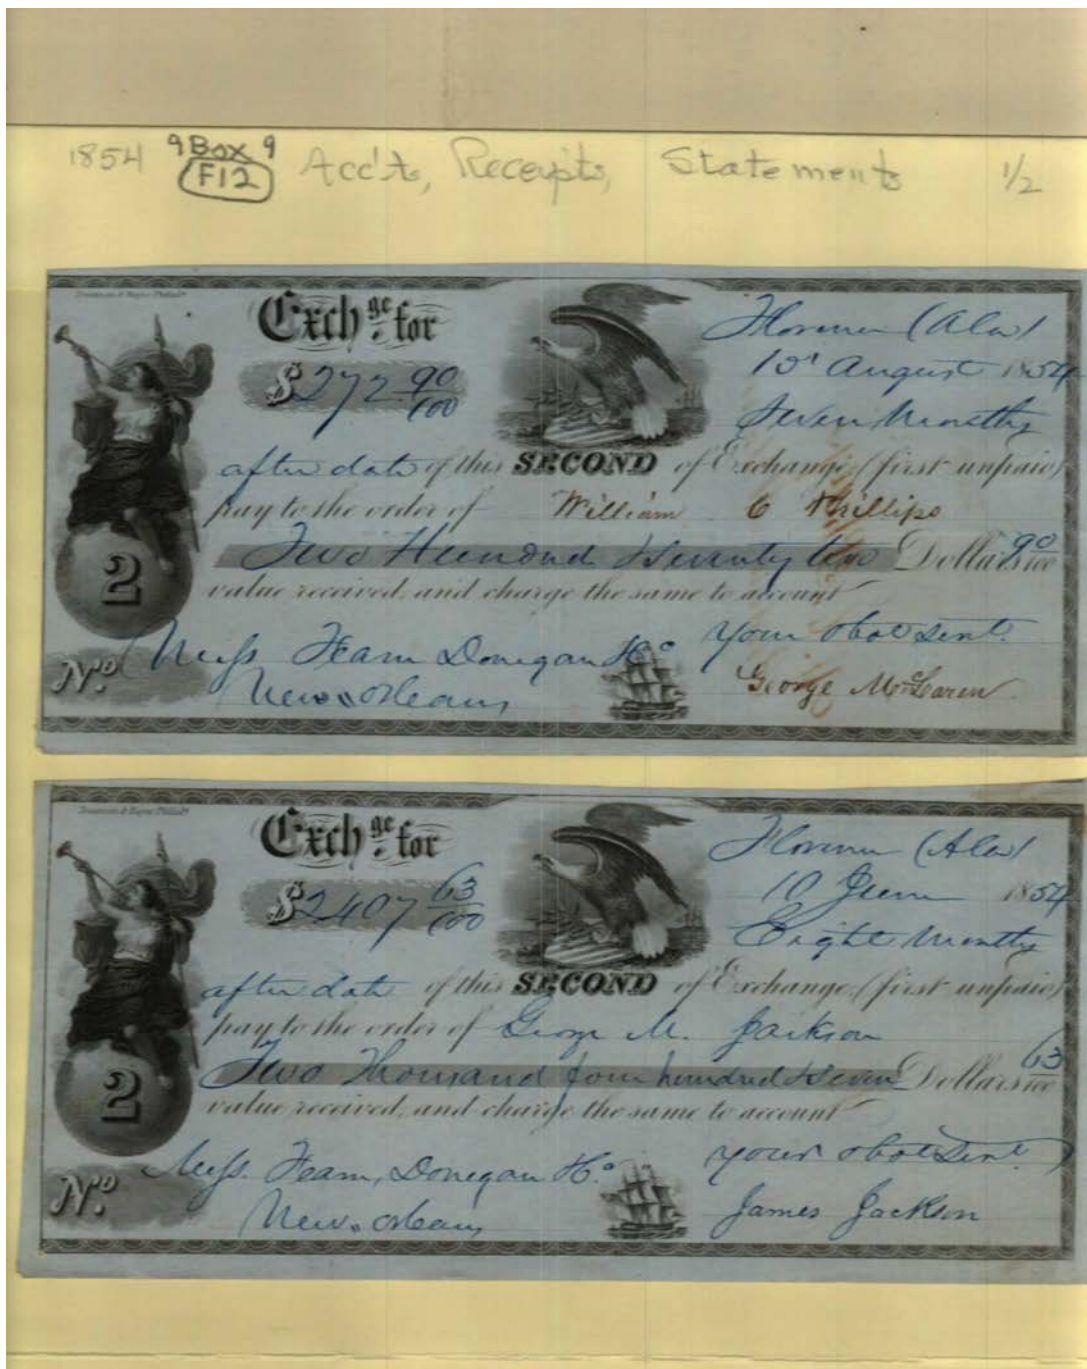 1854 9 Box 9 Acc'ts, Receipts, Statements 1/2
F12
Exchge. for
Florence (Ala)
$272 90/100
1st August 1854
Seven Months
after date of this SECOND of Exchange (first unpaid)
pay to the order of William C Phillips
Two Hundred Seventy two Dollars 90/100
value received, and charge the same to account
2
Your obdt Servt.
Messs Fearn Donegan & Co
No.
New Orleans
George McLaren
Exchge. for
Florence (Ala)
$2407 63/100
10 June 1854
Eight Months
after date of this SECOND of Exchange (first unpaid)
pay to the order of George M. Jackson
Two Thousand four hundred & Seven Dollars 63/100
value received, and charge the same to account
2
Your obdt Servt.
Messs. Fearn, Donegan & Co.
No.
New Orleans
James Jackson